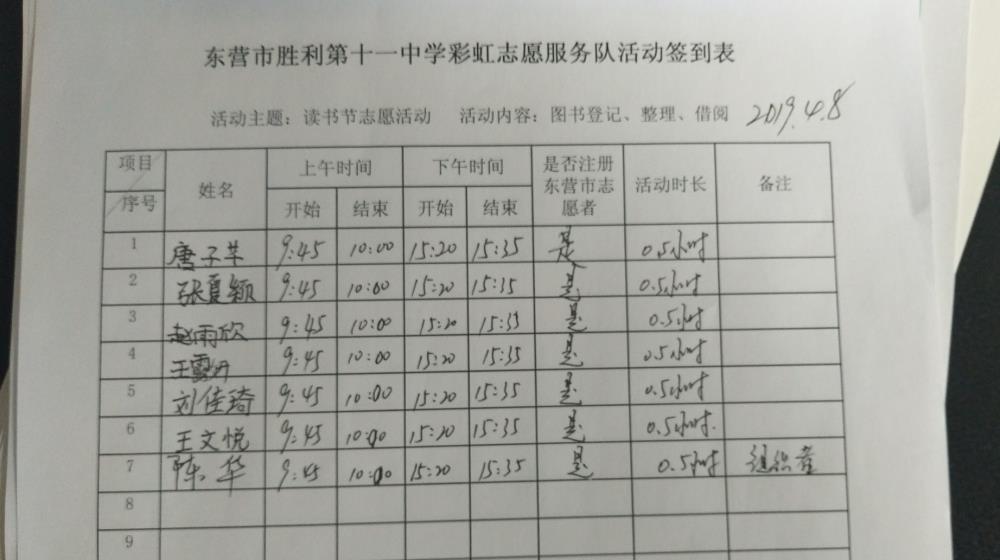 东营市胜利第十一中学彩虹志愿服务队活动签到表
活动主题：读书节志愿活动 活动内容：图书登记、整理、借阅 2019.4.8
项目 序号 姓名 上午时间 下午时间 是否注册东营市志愿者 活动时长 备注
开始 结束 开始 结束
1 唐子芊 9:45 10:00 15:20 15:35 是 0.5小时
2 张夏颖 9:45 10:00 15:20 15:35 是 0.5小时
3 赵雨欣 9:45 10:00 15:20 15:35 是 0.5小时
4 王雪 9:45 10:00 15:20 15:35 是 0.5小时
5 刘佳琦 9:45 10:00 15:20 15:35 是 0.5小时
6 王文悦 9:45 10:00 15:20 15:35 是 0.5小时.
7 陈华 9:45 10:00 15:20 15:35 是 0.5小时 组织者
8
9